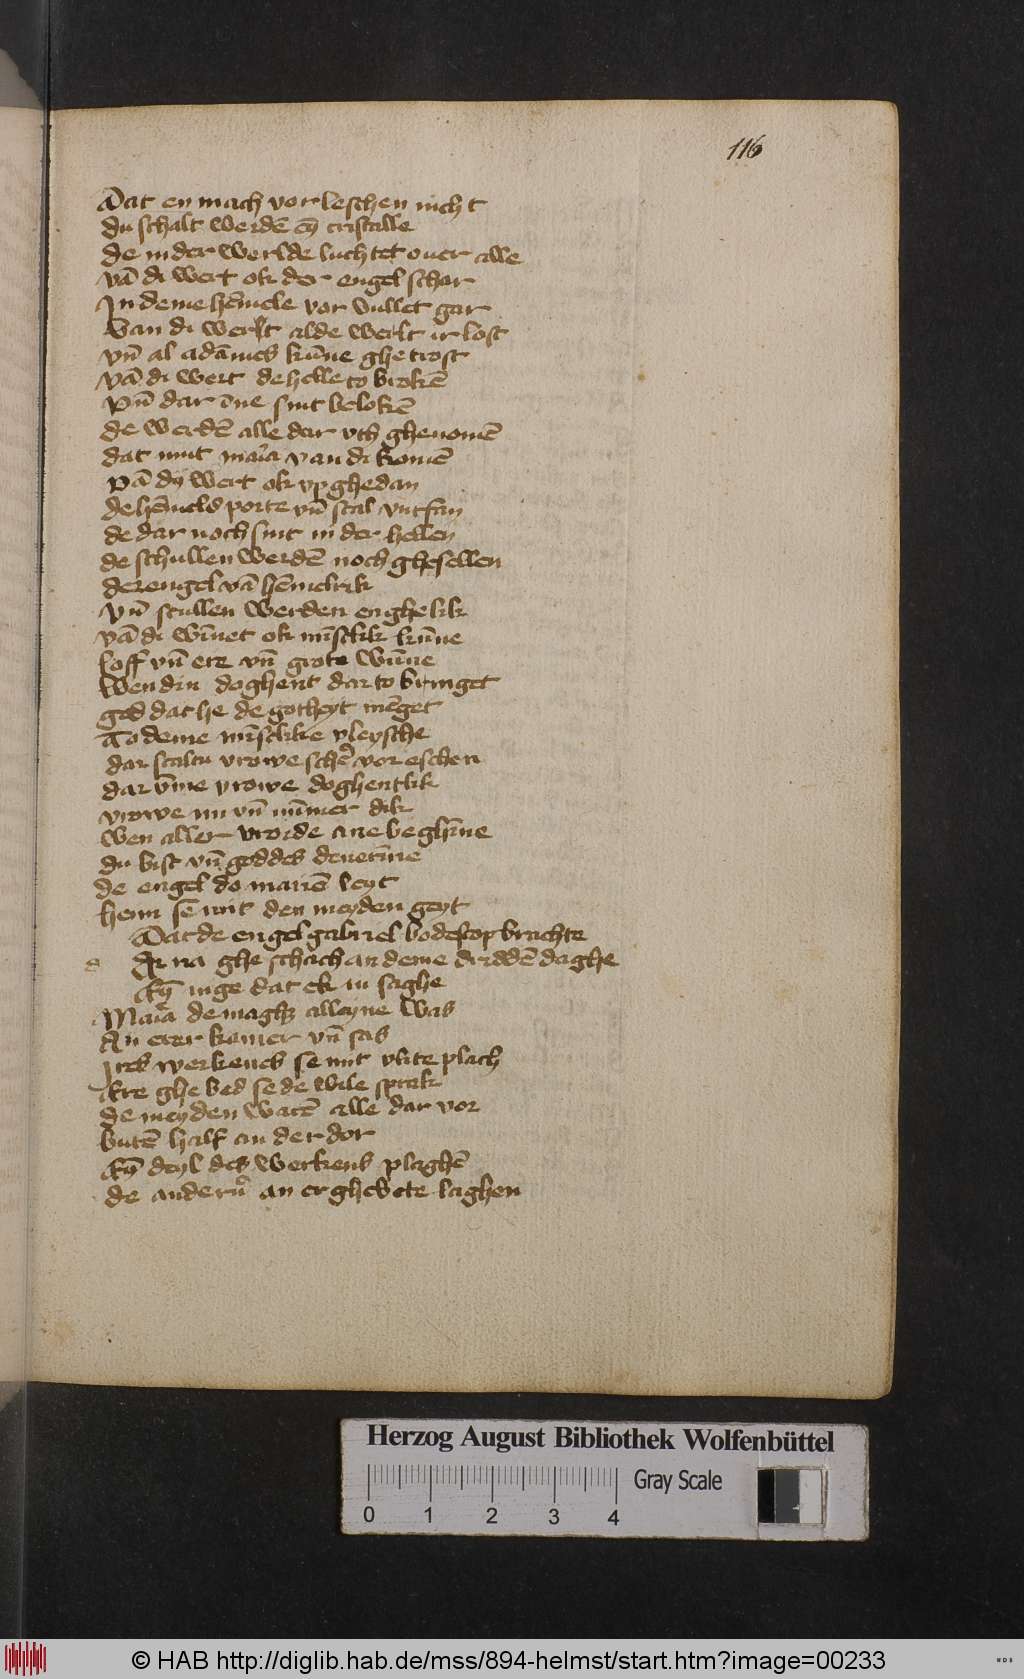 116
Dat en mach vor leschen nicht
du schalt werdē eȳ cristalle
de in der werlde luchtet ouer alle
vā di wert ok der engel schar
In deme hēmele vor vullet gar
Van di werlt alde werlt ir lost
vn̄ al adāmes kūne ghe trost
vā di wert de helle to brokē
vn̄ dar īne sint belokē
de werdē alle dar vth ghenomē
dat mut maīa van di komē
vā dy wert ok vp ghedan
de hēmels porte vn̄ scal vntfan
de dar noch sint in der hellen
de schullen werdē noch ghesellen
der engel vā hēmelrik
vn̄ scullen werden enghelik
vā di wīnet ok mīsclik kūne
loff vn̄ ere vn̄ grote wūne
wen din doghent dar to bringet
god dat he de gotheyt mēget
To deme mīsclike vleysche
dar scaltu vrowe schēr vor eschen
dar v̄me vrowe doghentlik
vrowe nu vn̄ nūmer dik
wen aller vroide ane beghīne
du bist vn̄ goddes denerīne
de engel do mariē leyt
henn se mit den meyden geyt
Dat de engel gabriel bodescop brachte
Ar na ghe schach an deme driddē daghe
Eyn̄ inge dat ek iu saghe
Maīa de maghȝ alleyne was
An erer kamer vn̄ sas
Ires werkendes se mit vlite plach
Ere ghe bed se de wile sprak
de meyden warē alle dar vor
butē half an der dor
Eyn̄ deyl des werkens plaghē
de andern̄ an er ghebete laghen
Herzog August Bibliothek Wolfenbüttel
Gray Scale
0 1 2 3 4
© HAB http://diglib.hab.de/mss/894-helmst/start.htm?image=00233